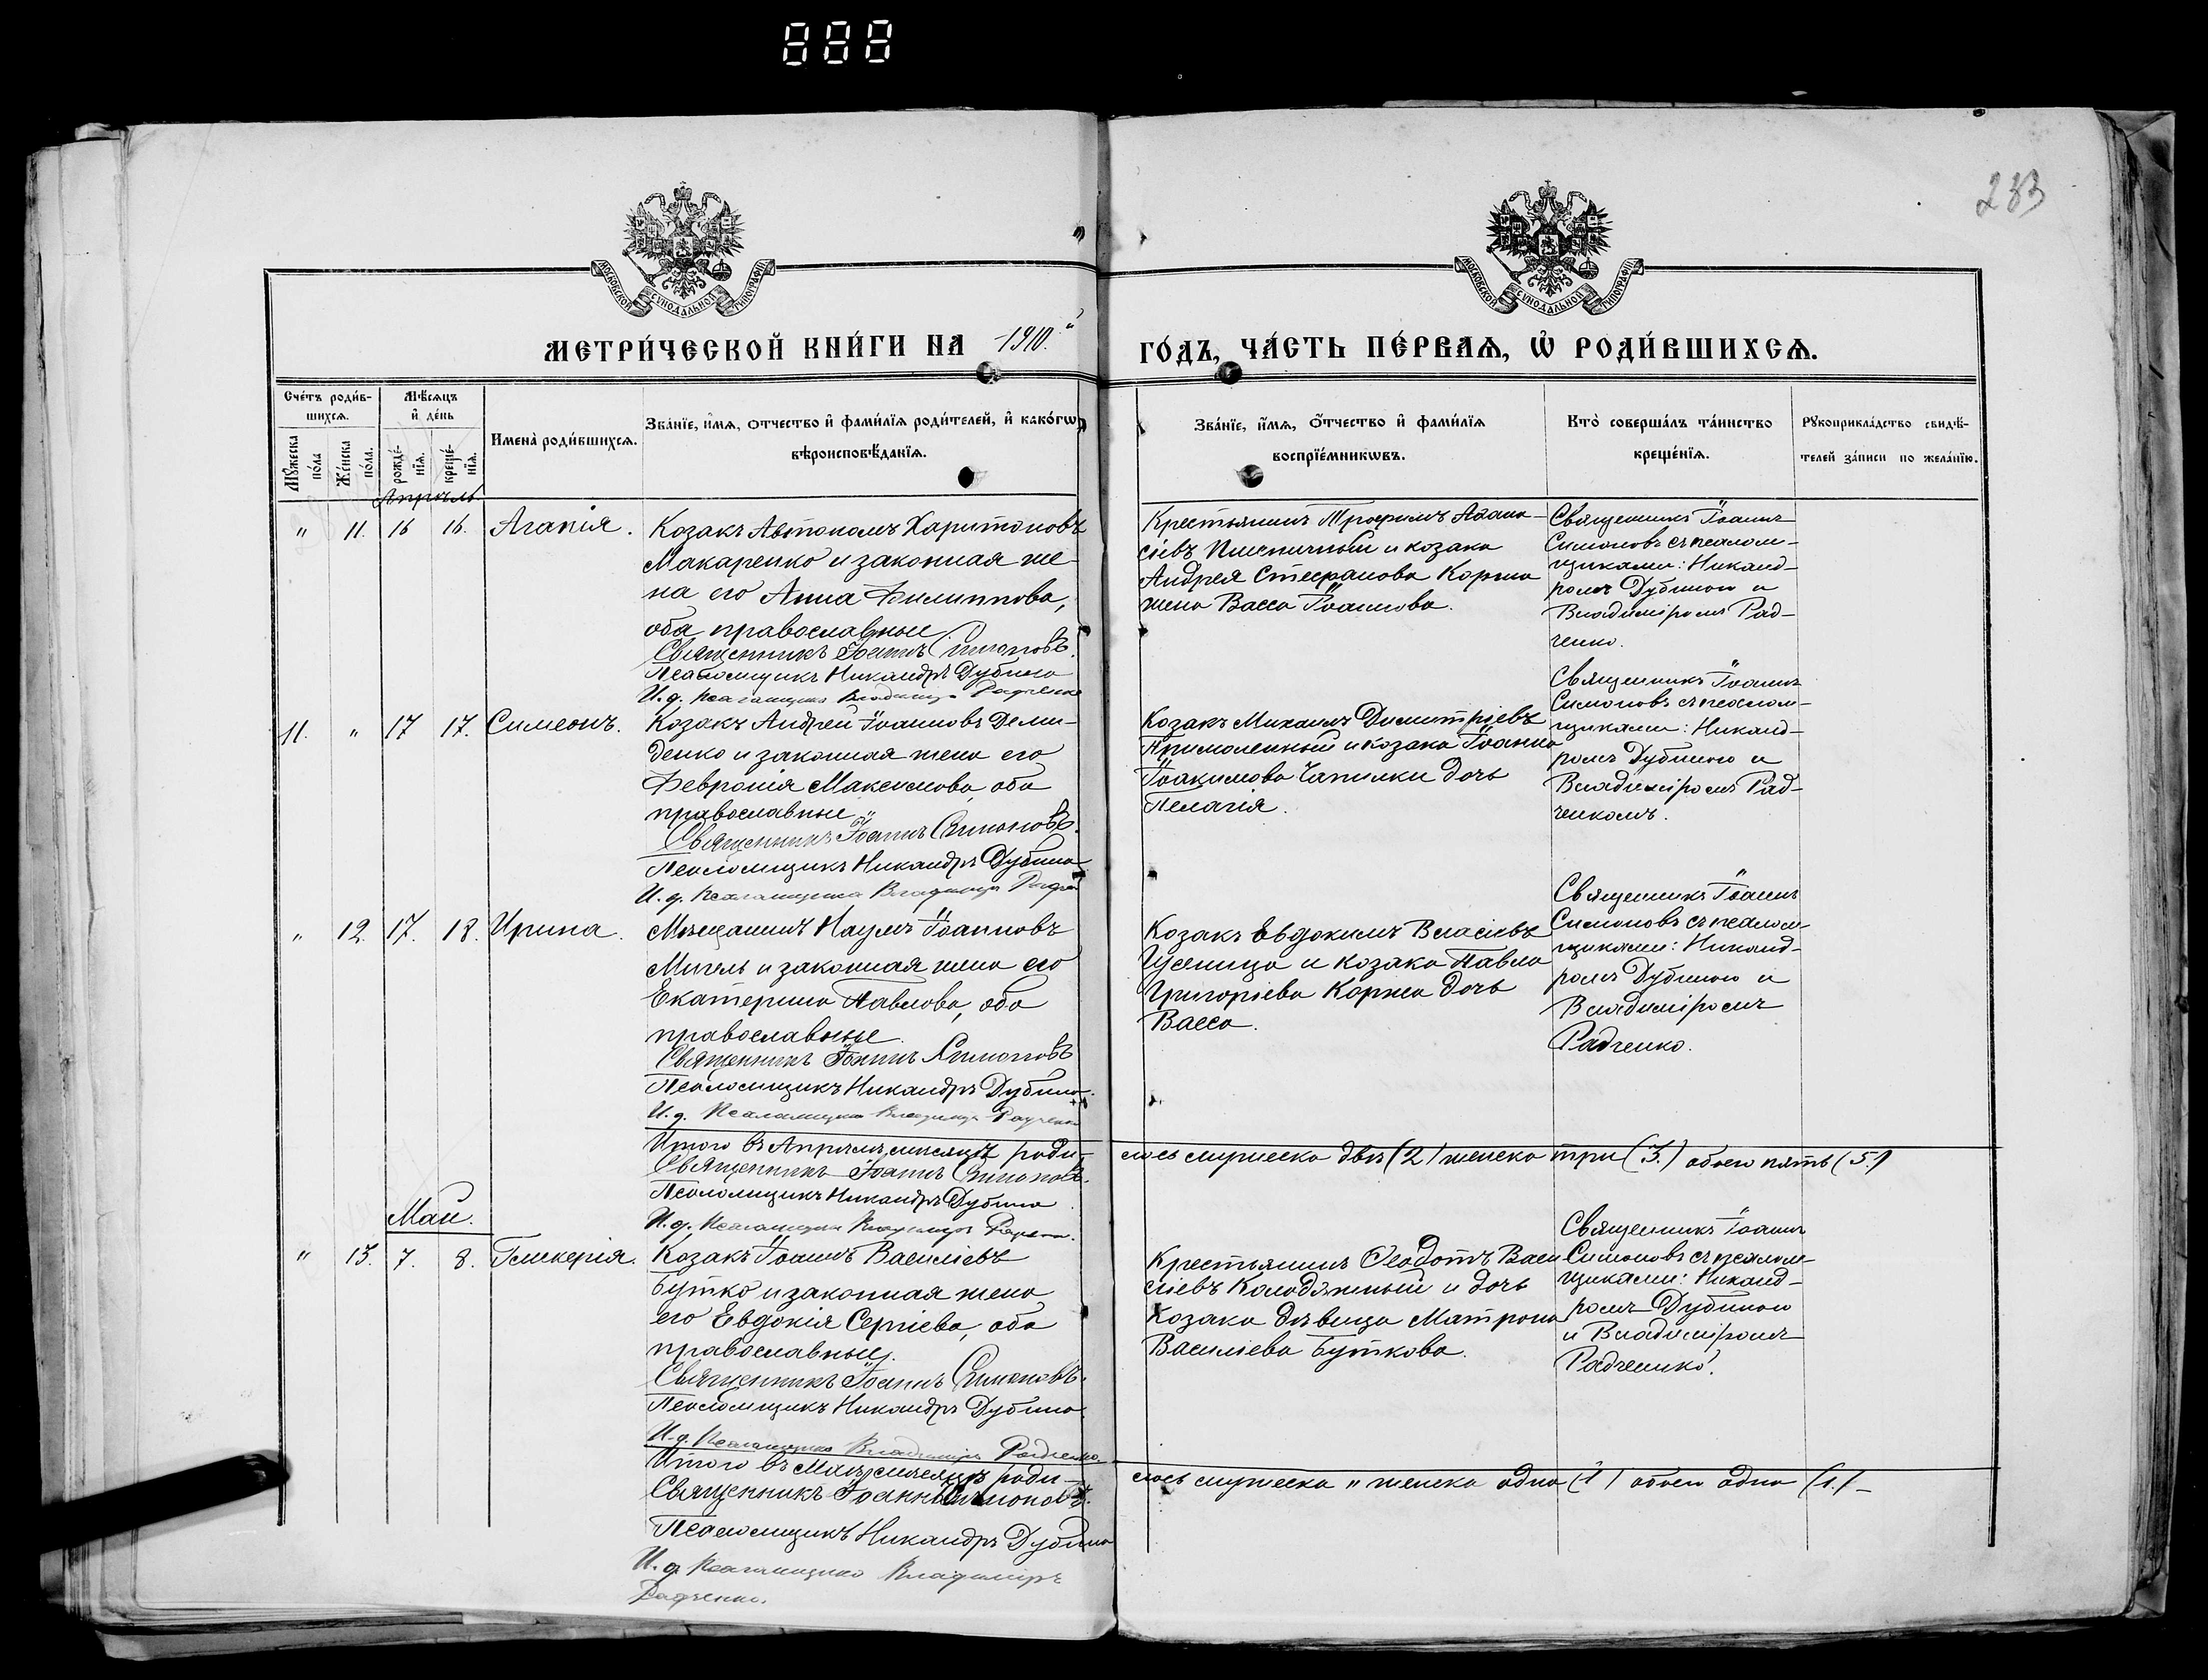 888
233
МОСКОВСКОЙ СѴНОДАЛЬНОЙ ТИПОГРАФІИ
МОСКОВСКОЙ СѴНОДАЛЬНОЙ ТИПОГРАФІИ
МЕТРИ́ЧЕСКОЙ КНИ́ГИ НА 1910.
ГО́ДЪ, ЧА́СТЬ ПЕ́РВАѦ, Ѡ҆ РОДИ́ВШИХСѦ.
Сче́тъ роди́в-
шихсѧ.
Мꙋжеска по́ла
Же́нска по́ла.
Мѣ́сѧцъ
и҆ де́нь
рожде́-
нїѧ.
креще́-
нїѧ.
Имена̀ роди́вшихсѧ.
Зва́нїе, и҆́мѧ, ѻ҆́тчество и҆ фами́лїѧ роди́телей, и҆ како́гѡ
вѣроисповѣ́данїѧ.
Зва́нїе, и҆́мѧ, ѻ҆́тчество и҆ фами́лїѧ
воспрїе́мникѡвъ.
Кто̀ соверша́лъ та́инство
креще́нїѧ.
Рꙋкоприкла́дство свидѣ́-
телей за́писи по жела́нїю.
Апрѣль.
" 11. 16 16. Агапія.
Козакъ Автономъ Харитоновъ
Макаренко и законная же-
на его Анна Филиппова,
оба православные.
Священникъ Іоаннъ Симоновъ.
Псаломщикъ Никандръ Дубина
И. д. псаломщика Владиміръ Радченко
Крестьянинъ Трофимъ Афана-
сіевъ Пшеничный и козака
Андрея Стефанова Коржа
жена Васса Іоаннова.
Священникъ Іоаннъ
Симоновъ съ псалом-
щиками: Никанд-
ромъ Дубиною и
Владиміромъ Рад-
ченко.
11. " 17 17. Симеонъ.
Козакъ Андрей Іоанновъ Деми-
денко и законная жена его
Февронія Максимова, оба
православные.
Священникъ Іоаннъ Симоновъ.
Псаломщикъ Никандръ Дубина
И. д. псаломщика Владиміръ
Козакъ Михаилъ Димитріевъ
Примоленный и козака Іоанна
Іоакимова Чапилки дочь
Пелагія.
Священникъ Іоаннъ
Симоновъ съ псалом-
щиками: Никанд-
ромъ Дубиною и
Владиміромъ Рад-
ченкомъ.
" 12. 17. 18. Ирина.
Мѣщанинъ Наумъ Іоанновъ
Мигель и законная жена его
Екатерина Павлова, оба
православные.
Священникъ Іоаннъ Симоновъ
Псаломщикъ Никандръ Дубина.
И. д. Псаломщика Владиміръ Радченко
Козакъ Евдокимъ Власіевъ
Гусеница и козака Павла
Григоріева Коржа дочь
Васса.
Священникъ Іоаннъ
Симоновъ съ псалом-
щиками: Никанд-
ромъ Дубиною и
Владиміромъ
Радченко.
Итого въ Апрѣлѣ мѣсяцѣ роди-
лось мужеска два (2) женска три (3.) обоего пять (5.)
Священникъ Іоаннъ Симоновъ.
Псаломщикъ Никандръ Дубина
И. д. псаломщика Владиміръ Радченко.
Май.
" 13. 7. 8. Гликерія.
Козакъ Іоаннъ Василіевъ
Бутко и законная жена
его Евдокія Сергіева, оба
православные.
Священникъ Іоаннъ Симоновъ.
Псаломщикъ Никандръ Дубина.
И. д. Псаломщика Владиміръ Радченко.
Крестьянинъ Ѳеодотъ Васи-
ліевъ Колодяжный и дочь
козака дѣвица Матрона
Василіева Буткова.
Священникъ Іоаннъ
Симоновъ съ псалом-
щиками: Никанд-
ромъ Дубиною
и Владиміромъ
Радченко.
Итого въ Маѣ мѣсяцѣ роди-
лось мужеска " женска одна (1) обоего одна (1.)
Священникъ Іоаннъ Симоновъ.
Псаломщикъ Никандръ Дубина
И. д. Псаломщика Владиміръ
Радченко.